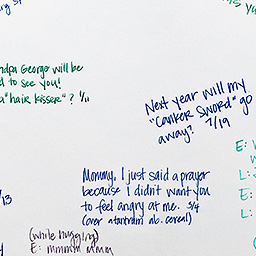 ndpa George will be
d to see you!
a "hair kisser"? 1/11
Next year will my
"Canker Sword" go
away? 7/19
E:
L:
E:
L:
Mommy, I just said a prayer
because I didn't want you
to feel angry at me. 3/4
(over a tantrum ab. cereal)
/13
(while hugging)
E: mmmm